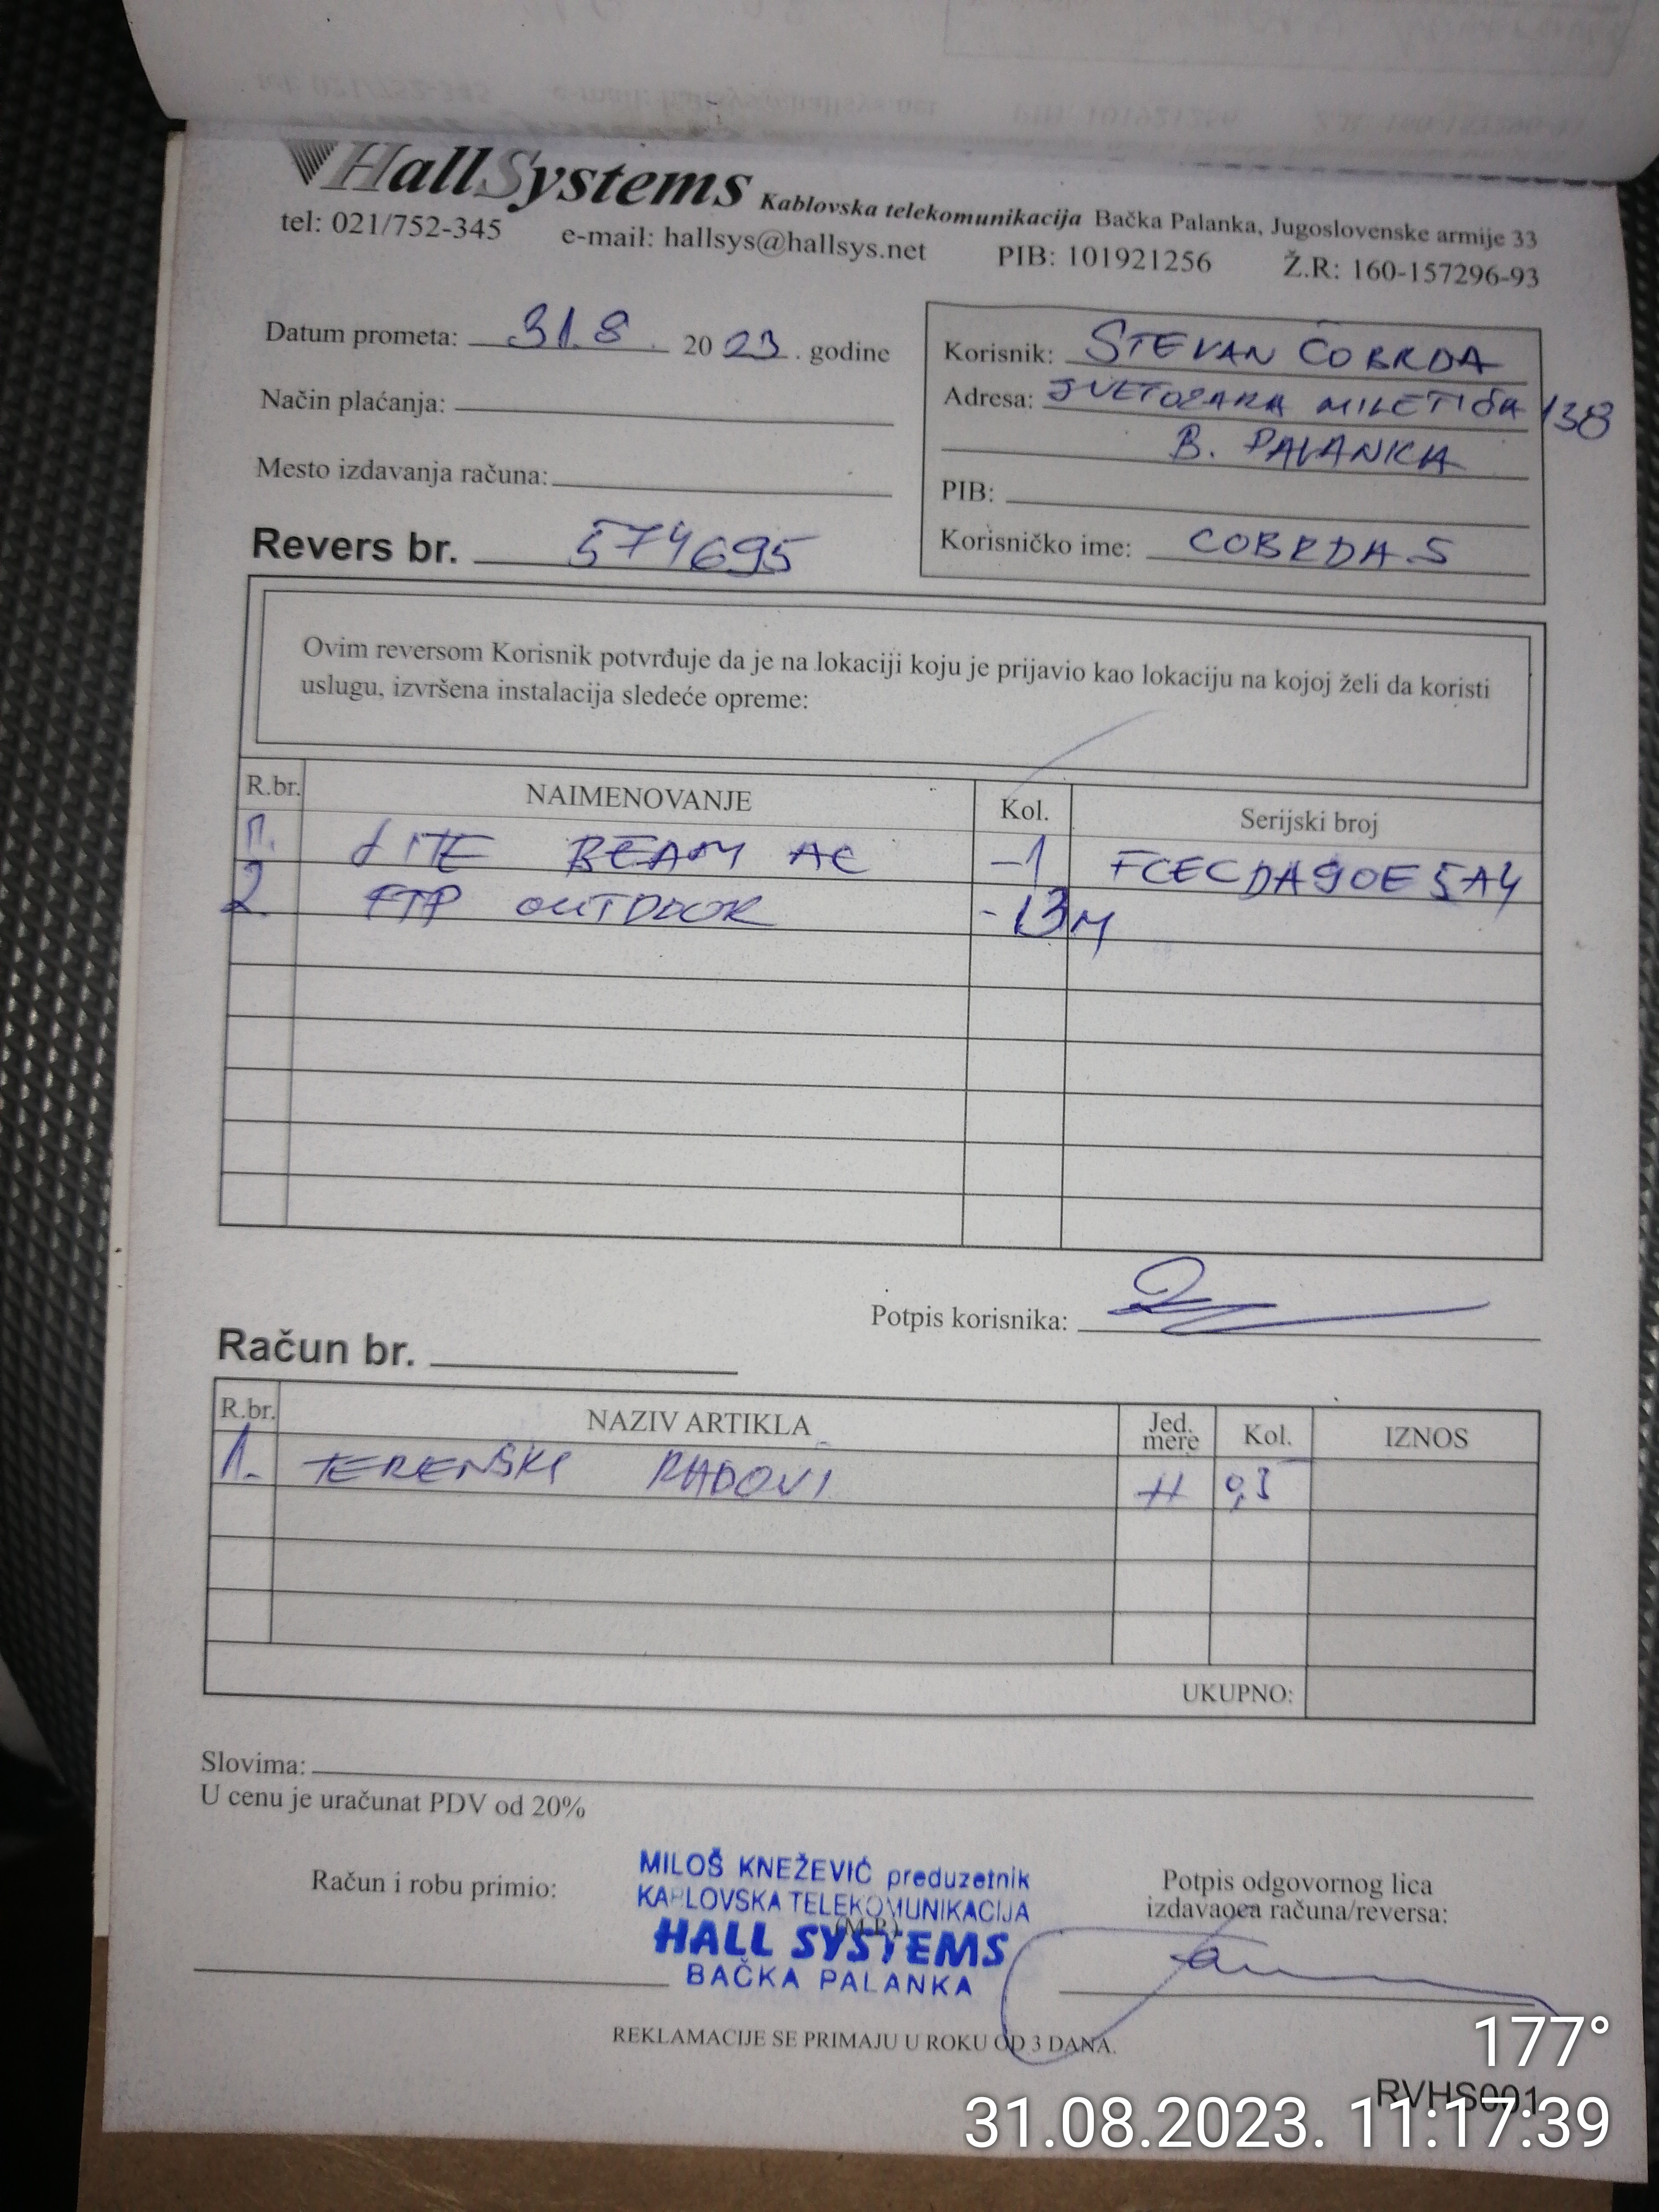 HallSystems Kablovska telekomunikacija Bačka Palanka, Jugoslovenske armije 33
tel: 021/752-345 e-mail: hallsys@hallsys.net PIB: 101921256 Ž.R: 160-157296-93
Datum prometa: 31.8. 2023. godine
Način plaćanja:
Mesto izdavanja računa:
Revers br. 574695
Korisnik: STEVAN ČOBRDA
Adresa: SVETOZARA MILETIĆA 138
B. PALANKA
PIB:
Korisničko ime: COBRDA.S
Ovim reversom Korisnik potvrđuje da je na lokaciji koju je prijavio kao lokaciju na kojoj želi da koristi
uslugu, izvršena instalacija sledeće opreme:
R.br. NAIMENOVANJE Kol. Serijski broj
1. LITE BEAM AC -1 FCECDA90E5A4
2. FTP OUTDOOR -13M
Potpis korisnika:
Račun br.
R.br. NAZIV ARTIKLA Jed. mere Kol. IZNOS
1. TERENSKI RADOVI H
UKUPNO:
Slovima:
U cenu je uračunat PDV od 20%
Račun i robu primio:
MILOŠ KNEŽEVIĆ preduzetnik
KABLOVSKA TELEKOMUNIKACIJA
(M.P.)
HALL SYSTEMS
BAČKA PALANKA
Potpis odgovornog lica
izdavaoca računa/reversa:
REKLAMACIJE SE PRIMAJU U ROKU OD 3 DANA.
177°
RVHS001
31.08.2023. 11:17:39